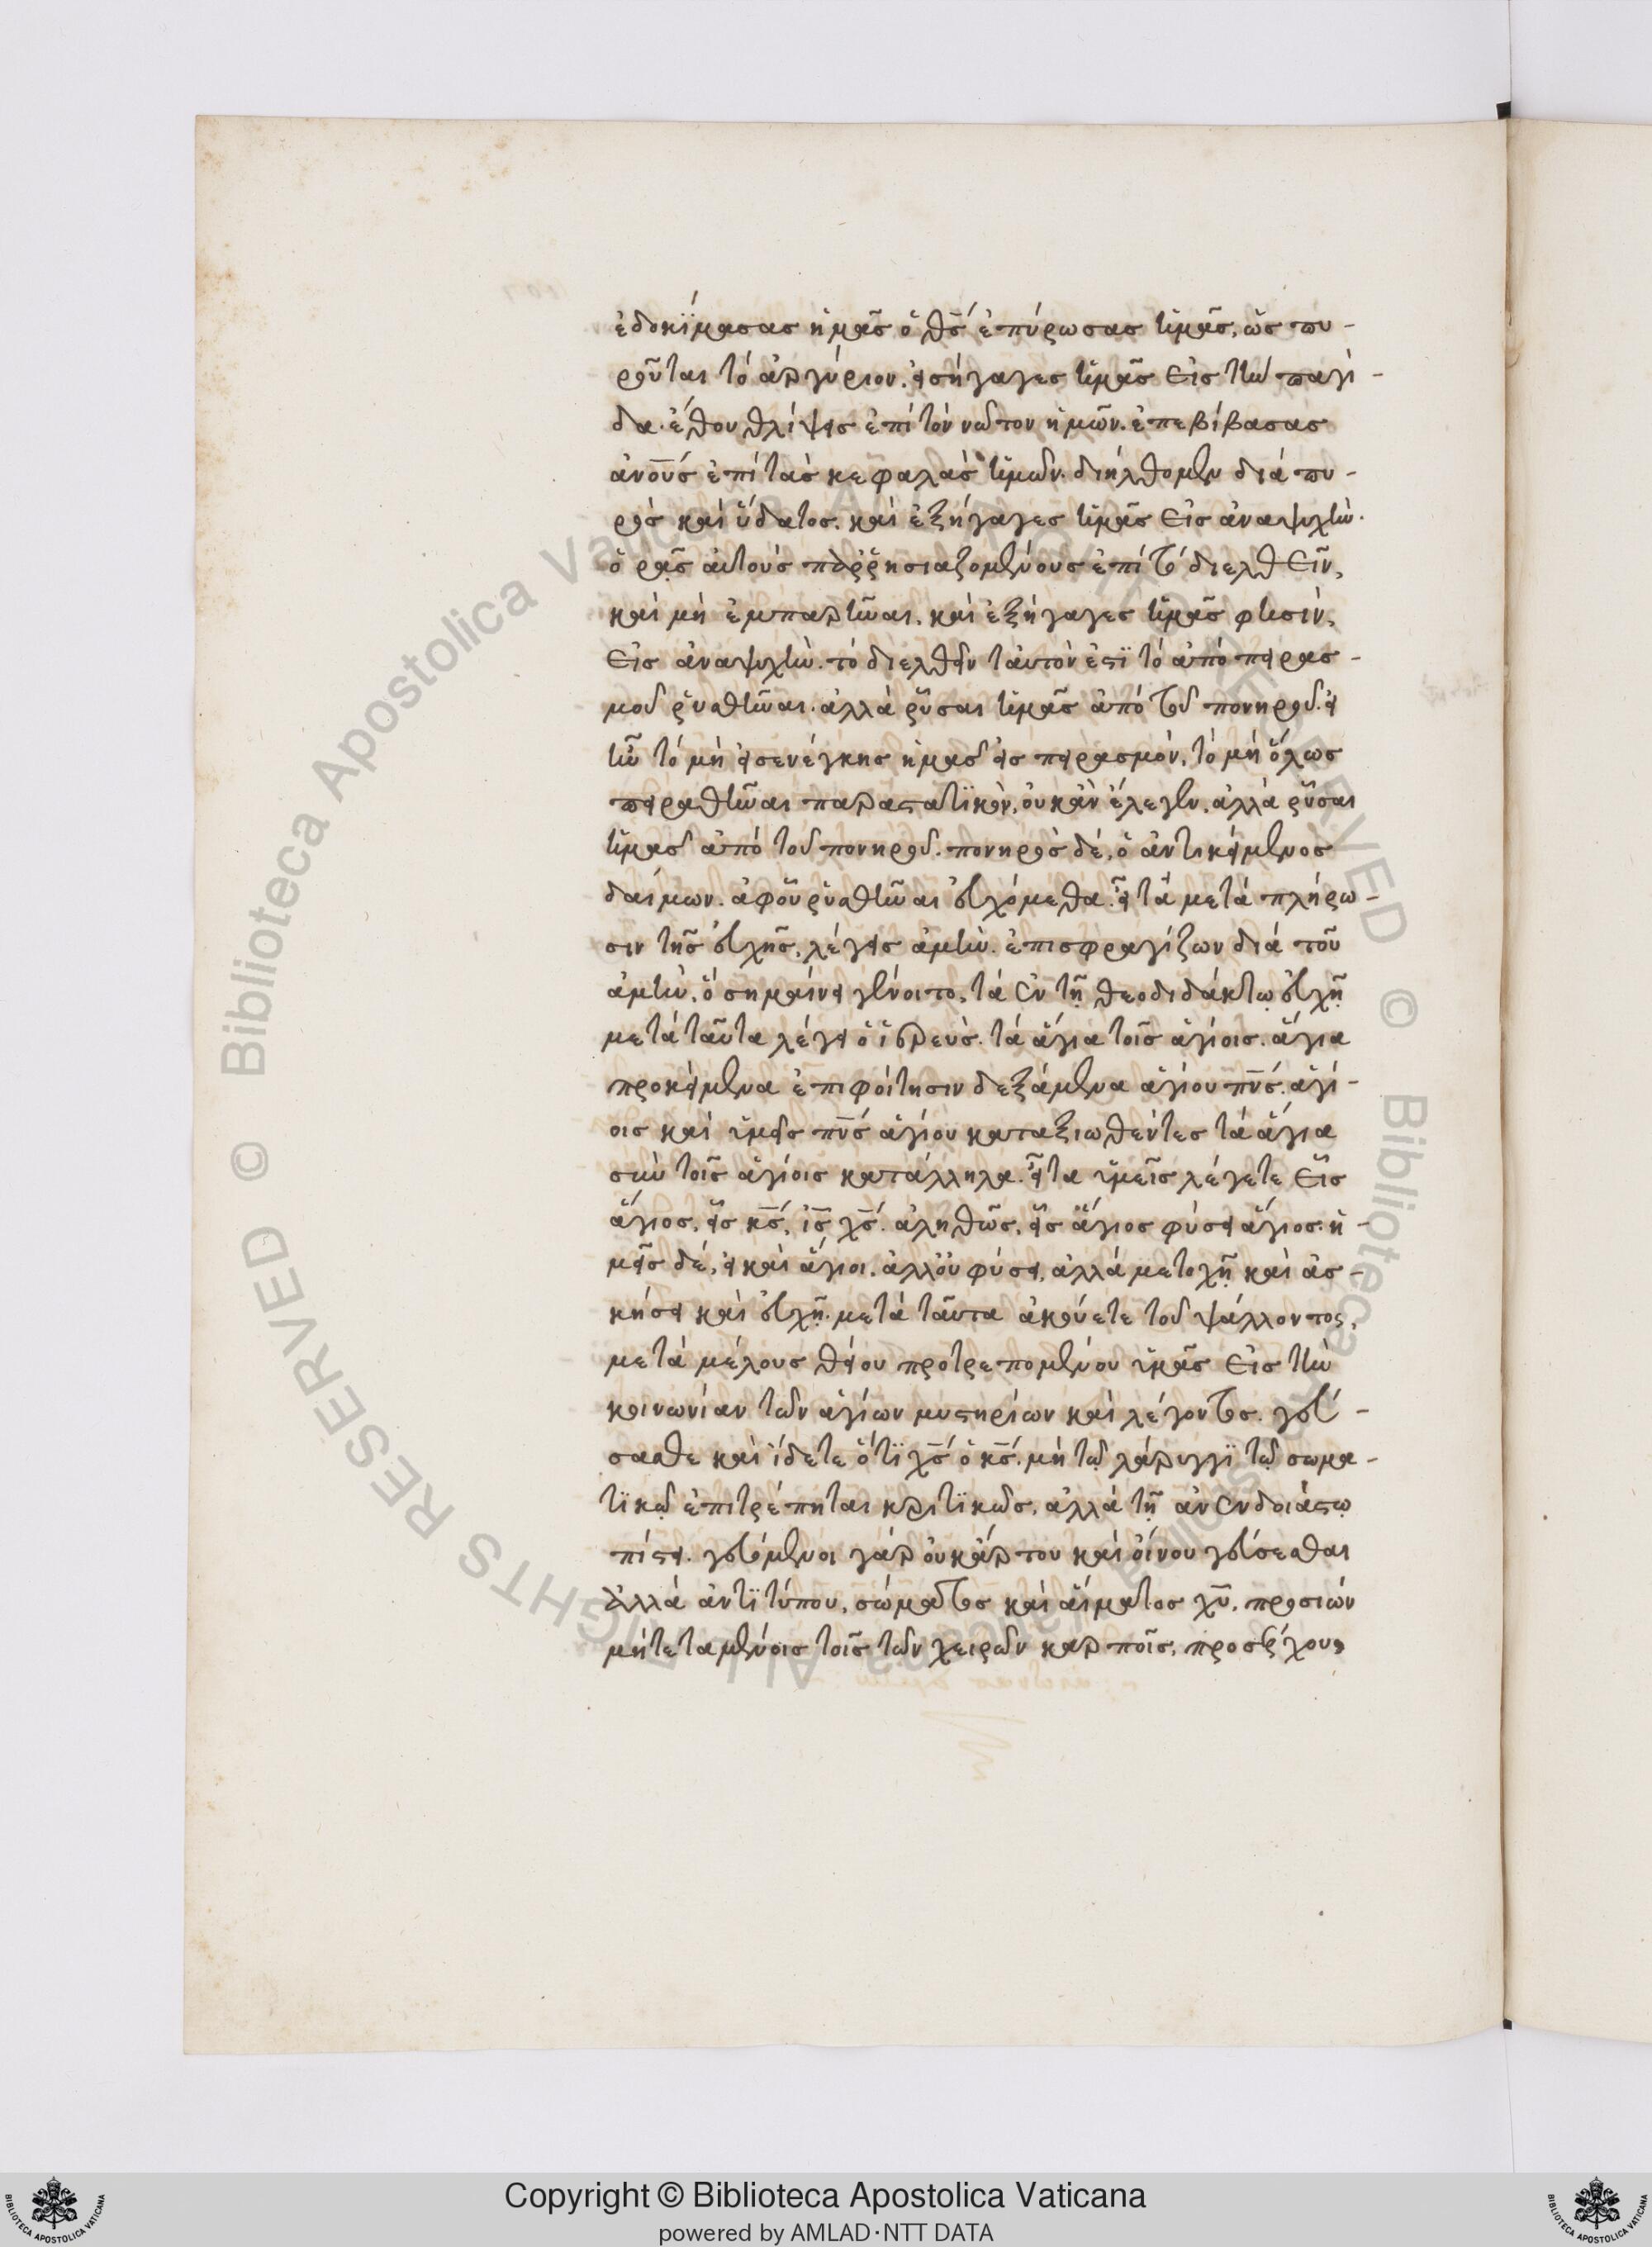 ἐδοκϊμασας ἡμᾶς ὁ θς̅ ἐπύρωσας ἡμᾶς, ὡς πυ-
ροῦται τὸ ἀργύριον. εἰσήγαγες ἡμᾶς εἰς τὴν παγί-
δα. ἔθου θλίψεις ἐπὶ τὸν νῶτον ἡμῶν. ἐπεβίβασας
ἀνο̅υ̅ς ἐπὶ τὰς κεφαλὰς ἡμῶν. διήλθομεν διὰ πυ-
ρὸς καὶ ὕδατος. καὶ ἐξήγαγες ἡμᾶς εἰς ἀναψυχὴν.
ὁρᾷς αὐτοὺς παῤῥησιαζομένους ἐπὶ τὸ διελθεῖν,
καὶ μὴ ἐμπαρῆναι. καὶ ἐξήγαγες ἡμᾶς φησὶν,
εἰς ἀναψυχὴν. τὸ διελθεῖν ταυτὸν ἐστϊ τὸ ἀπὸ πειρασ-
μοῦ ῥυσθῆναι. ἀλλὰ ῥῦσαι ἡμᾶς ἀπὸ τοῦ πονηροῦ. εἰ
ἦν τὸ μὴ εἰσενέγκης ἡμᾶς εἰς πειρασμὸν, τὸ μὴ ὅλως
πειρασθῆναι παραστατϊκὸν, οὐκ ἂν ἔλεγεν, ἀλλὰ ῥῦσαι
ἡμᾶς ἀπὸ τοῦ πονηροῦ. πονηρὸς δὲ, ὁ ἀντικείμενος
δαίμων. ἀφ' οὗ ῥυσθῆναι εὐχόμεθα. εἶτα μετὰ πλήρω-
σιν τῆς εὐχῆς, λέγεις ἀμὴν. ἐπισφραγίζων διὰ τοῦ
ἀμὴν, ὃ σημαίνει γένοιτο, τὰ ἐν τῇ θεοδιδάκτῳ εὐχῇ
μετὰ ταῦτα λέγει ὁ ἱερεὺς. τὰ ἅγια τοῖς ἁγίοις. ἅγια
προκείμενα ἐπιφοίτησιν δεξάμενα ἁγίου πν̅ς̅. ἁγί-
οις καὶ ὑμεῖς πν̅ς̅ ἁγίου καταξιωθέντες τὰ ἅγια
σὺν τοῖς ἁγίοις κατάλληλα. εἶτα ὑμεῖς λέγετε εἷς
ἅγιος, εἷς κς̅, ις̅ χς̅. ἀληθῶς, εἷς ἅγιος φύσει ἅγιος. ἡ-
μεῖς δὲ, εἰ καὶ ἅγιοι. ἀλλ' οὐ φύσει, ἀλλὰ μετοχῇ καὶ ἀσ-
κήσει καὶ εὐχῇ. μετὰ ταῦτα ἀκούετε τοῦ ψάλλοντος,
μετὰ μέλους θείου προτρεπομένου ὑμᾶς εἰς τὴν
κοινωνίαν τῶν ἁγίων μυστηρίων καὶ λέγοντος. γεύ-
σασθε καὶ ἴδετε ὅτϊ χς̅ ὁ κς̅. μὴ τῷ λάρυγγϊ τῷ σωμα-
τϊκῷ ἐπιτρέπηται κριτϊκῶς, ἀλλὰ τῇ ἀνενδοιάστῳ
πίστει. γευόμενοι γὰρ οὐκ ἄρτου καὶ οἴνου γεύσεσθαι
ἀλλὰ ἀντϊτύπου, σώματος καὶ αἵματος χυ̅. προσιὼν
μὴ τεταμένοις τοῖς τῶν χειρῶν καρποῖς, προσέρχου,